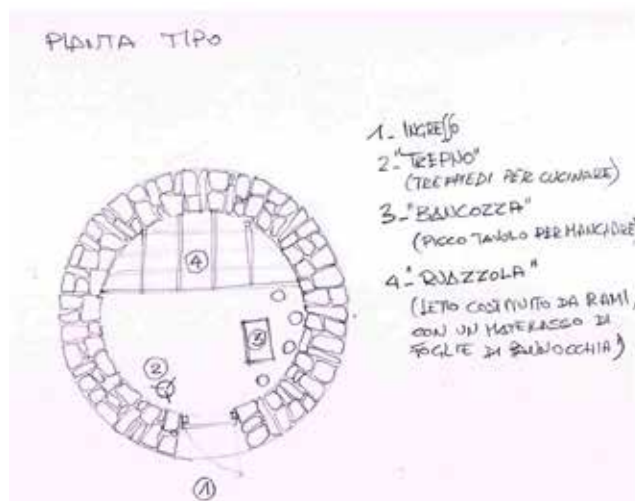 PIANTA TIPO
1- INGRESSO
2-"TREPNO"
(TREPPIEDI PER CUCINARE)
3-"BANCOZZA"
(PICCO TAVOLO PER MANGIARE)
4-"RIAZZOLA"
(LETO COSTITUITO DA RAMI,
CON UN MATERASSO DI
FOGLIE DI PANNOCCHIA)
4
3
2
1